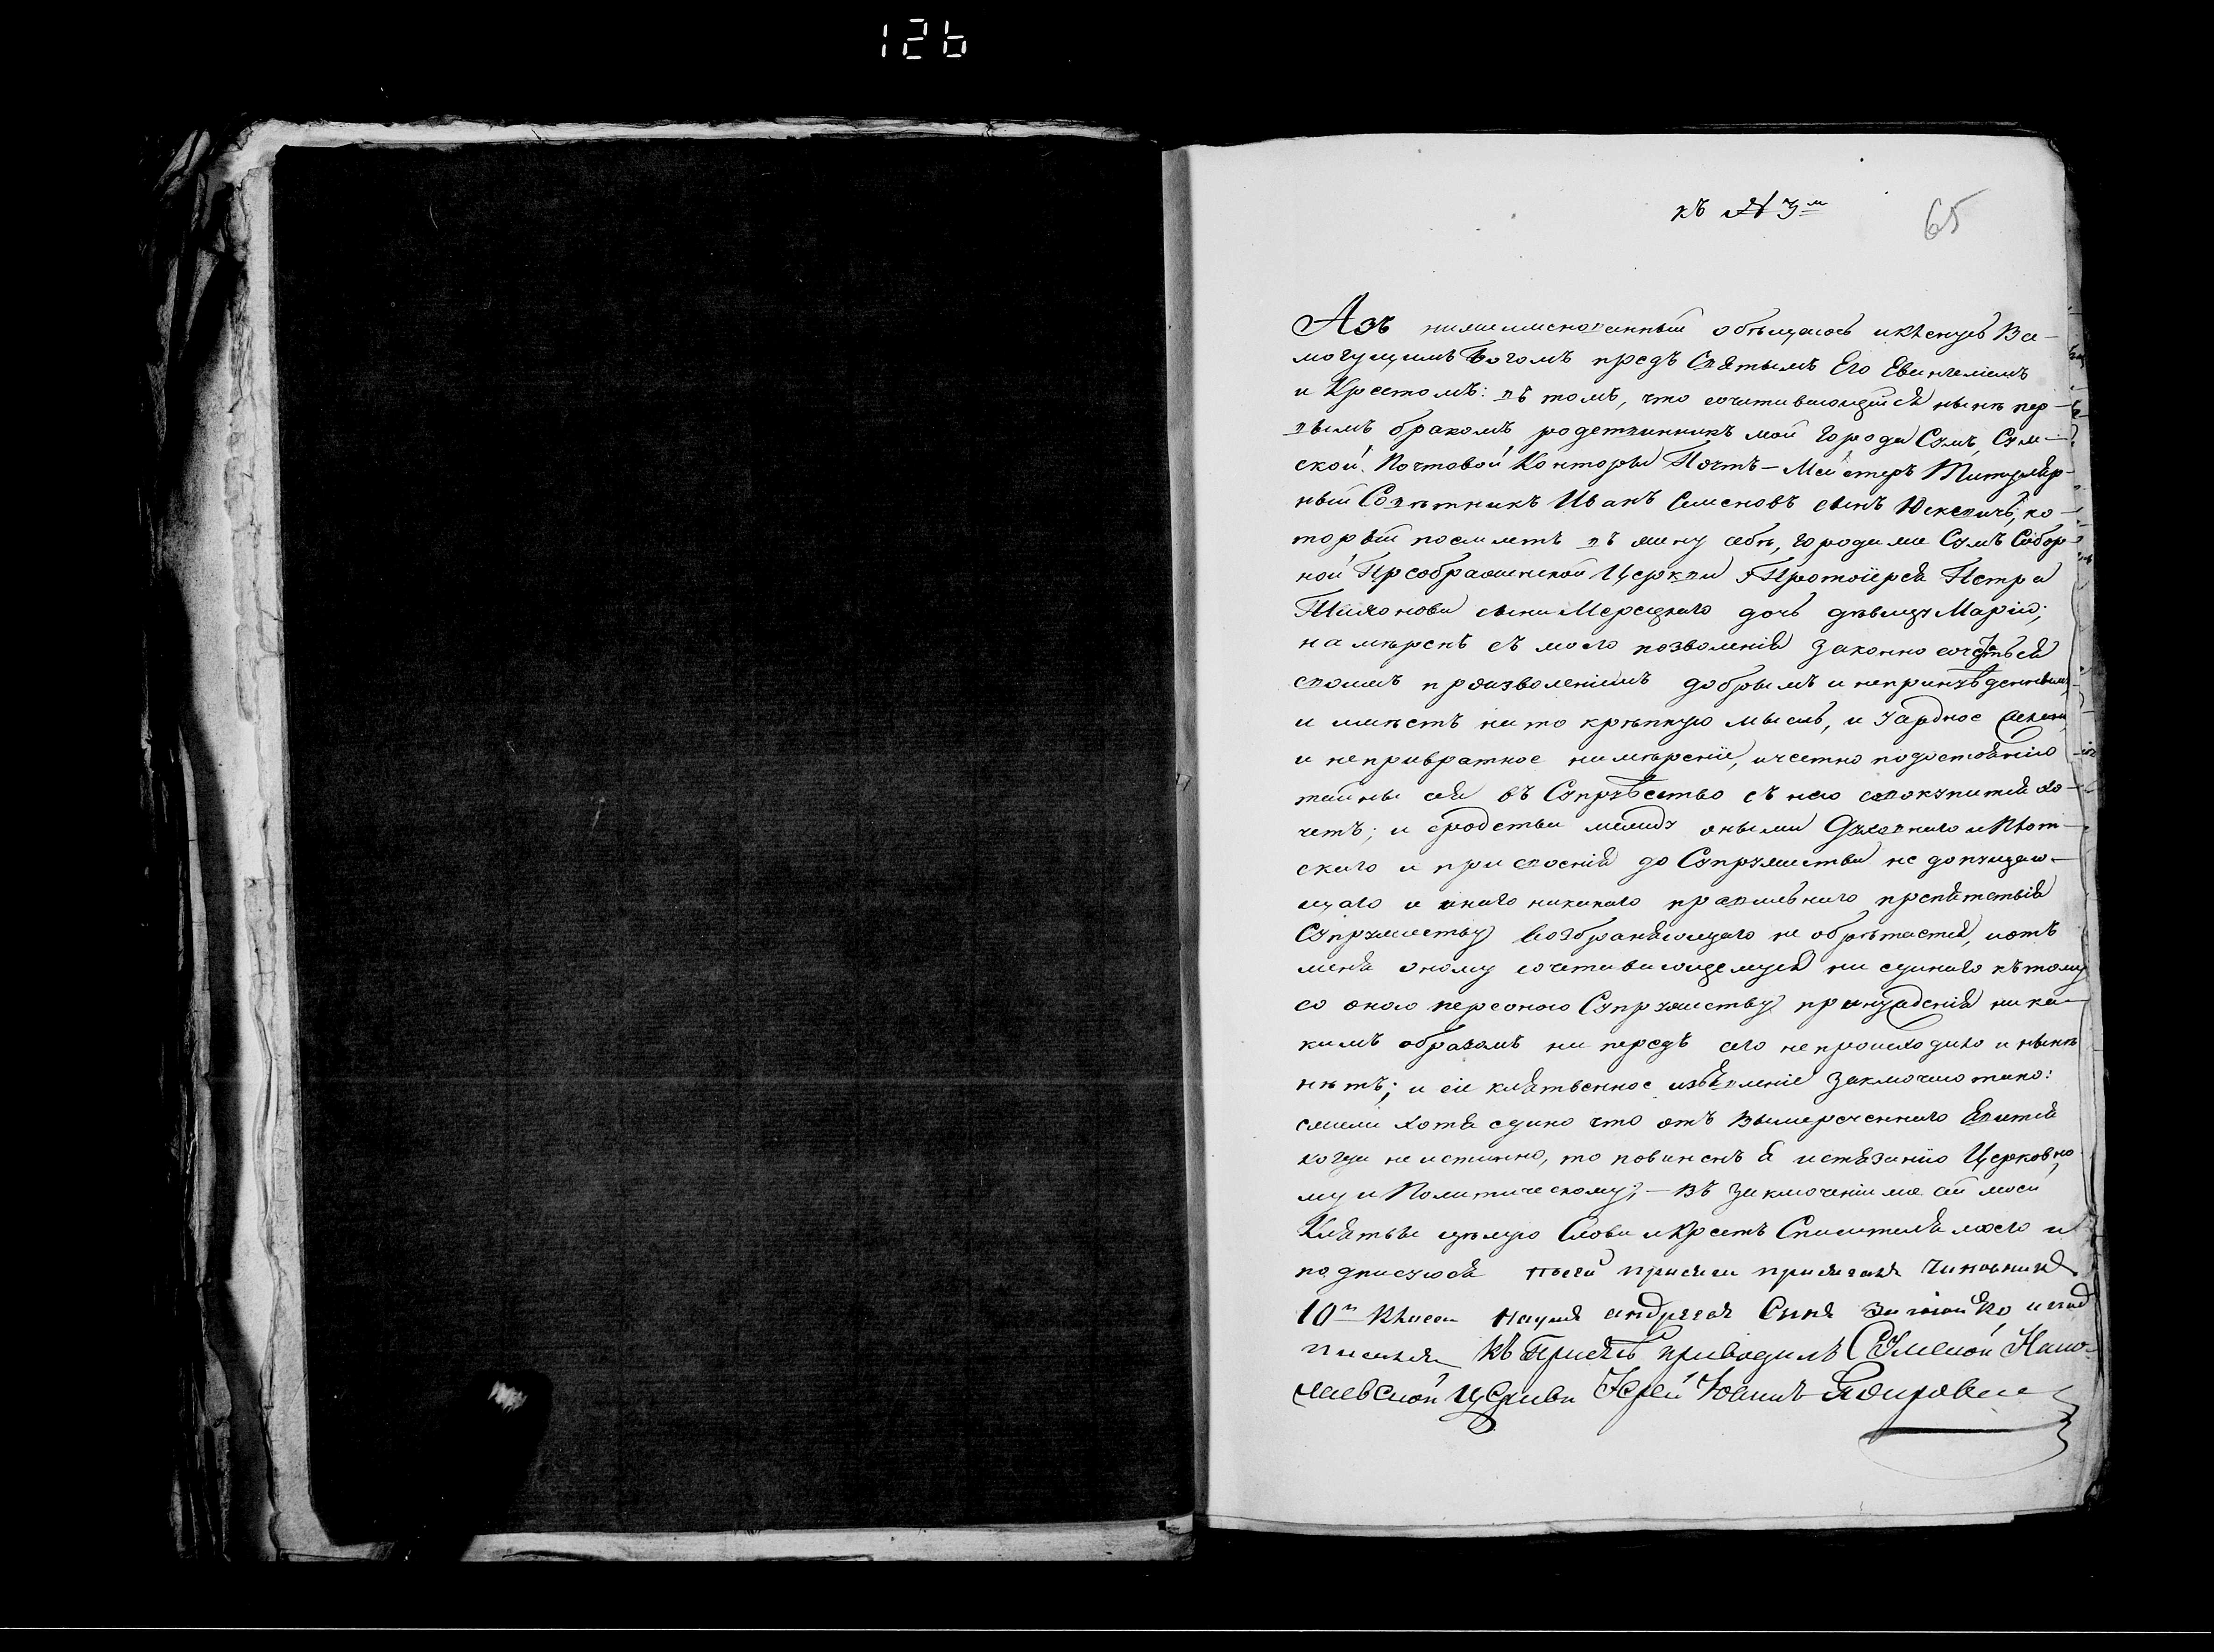 126
къ № 3м
65
Азъ нижеименованный обѣщаюсь и клянусь Все-
могущимъ Богомъ предъ Святымъ Его Евангеліемъ
и Крестомъ: въ томъ, что сочетавающійся нынѣ пер-
вымъ бракомъ родственникъ мой города Сумъ, Сум-
ской Почтовой Конторы Почтъ-Мейстеръ Титуляр-
ный Совѣтникъ Иванъ Семеновъ сынъ ко-
торый поемлетъ въ жену себѣ, города же Сумъ Собор-
ной Преображенской Церкви Протоіерея Петра
сына дочь дѣвицу Марію;
намѣренъ съ моего позволенія законно сочетаться
своимъ произволеніемъ добрымъ и непринужденнымъ
и имѣетъ на то крѣпкую мысль, и усердное желаніе
и неправратное намѣреніе, и честно по достоянію
тайны сея въ Супружество съ нею совокупитися хо-
четъ; и сродства между оными Духовнаго и Плот-
скаго и присвоенія до Супружества не допущаю-
щаго и инаго никакого правильнаго препятствія
Супружеству возбраняющаго не обрѣтается, и отъ
меня оному сочетавающемуся ни единаго къ тому
со оною персоною Супружеству принужденія ника-
кимъ образомъ ни передъ сего не происходило и нынѣ
нѣтъ; и сіе клятвенное изъявленіе заключаю тако:
ежели хотя едино что отъ вышереченнаго явится
когда не истинно, то повиненъ я истязанію Церковно-
му и Политическому; — Въ заключеніи же сей моей
Клятвы цѣлую Слова и Крестъ Спасителя моего и
подписуюся присяги присягалъ чиновникъ
10го класа андреевъ Сынъ и под
писался Къ Присягѣ приводилъ Сумской Нико-
лаевской Церкви Іерей Іоаннъ